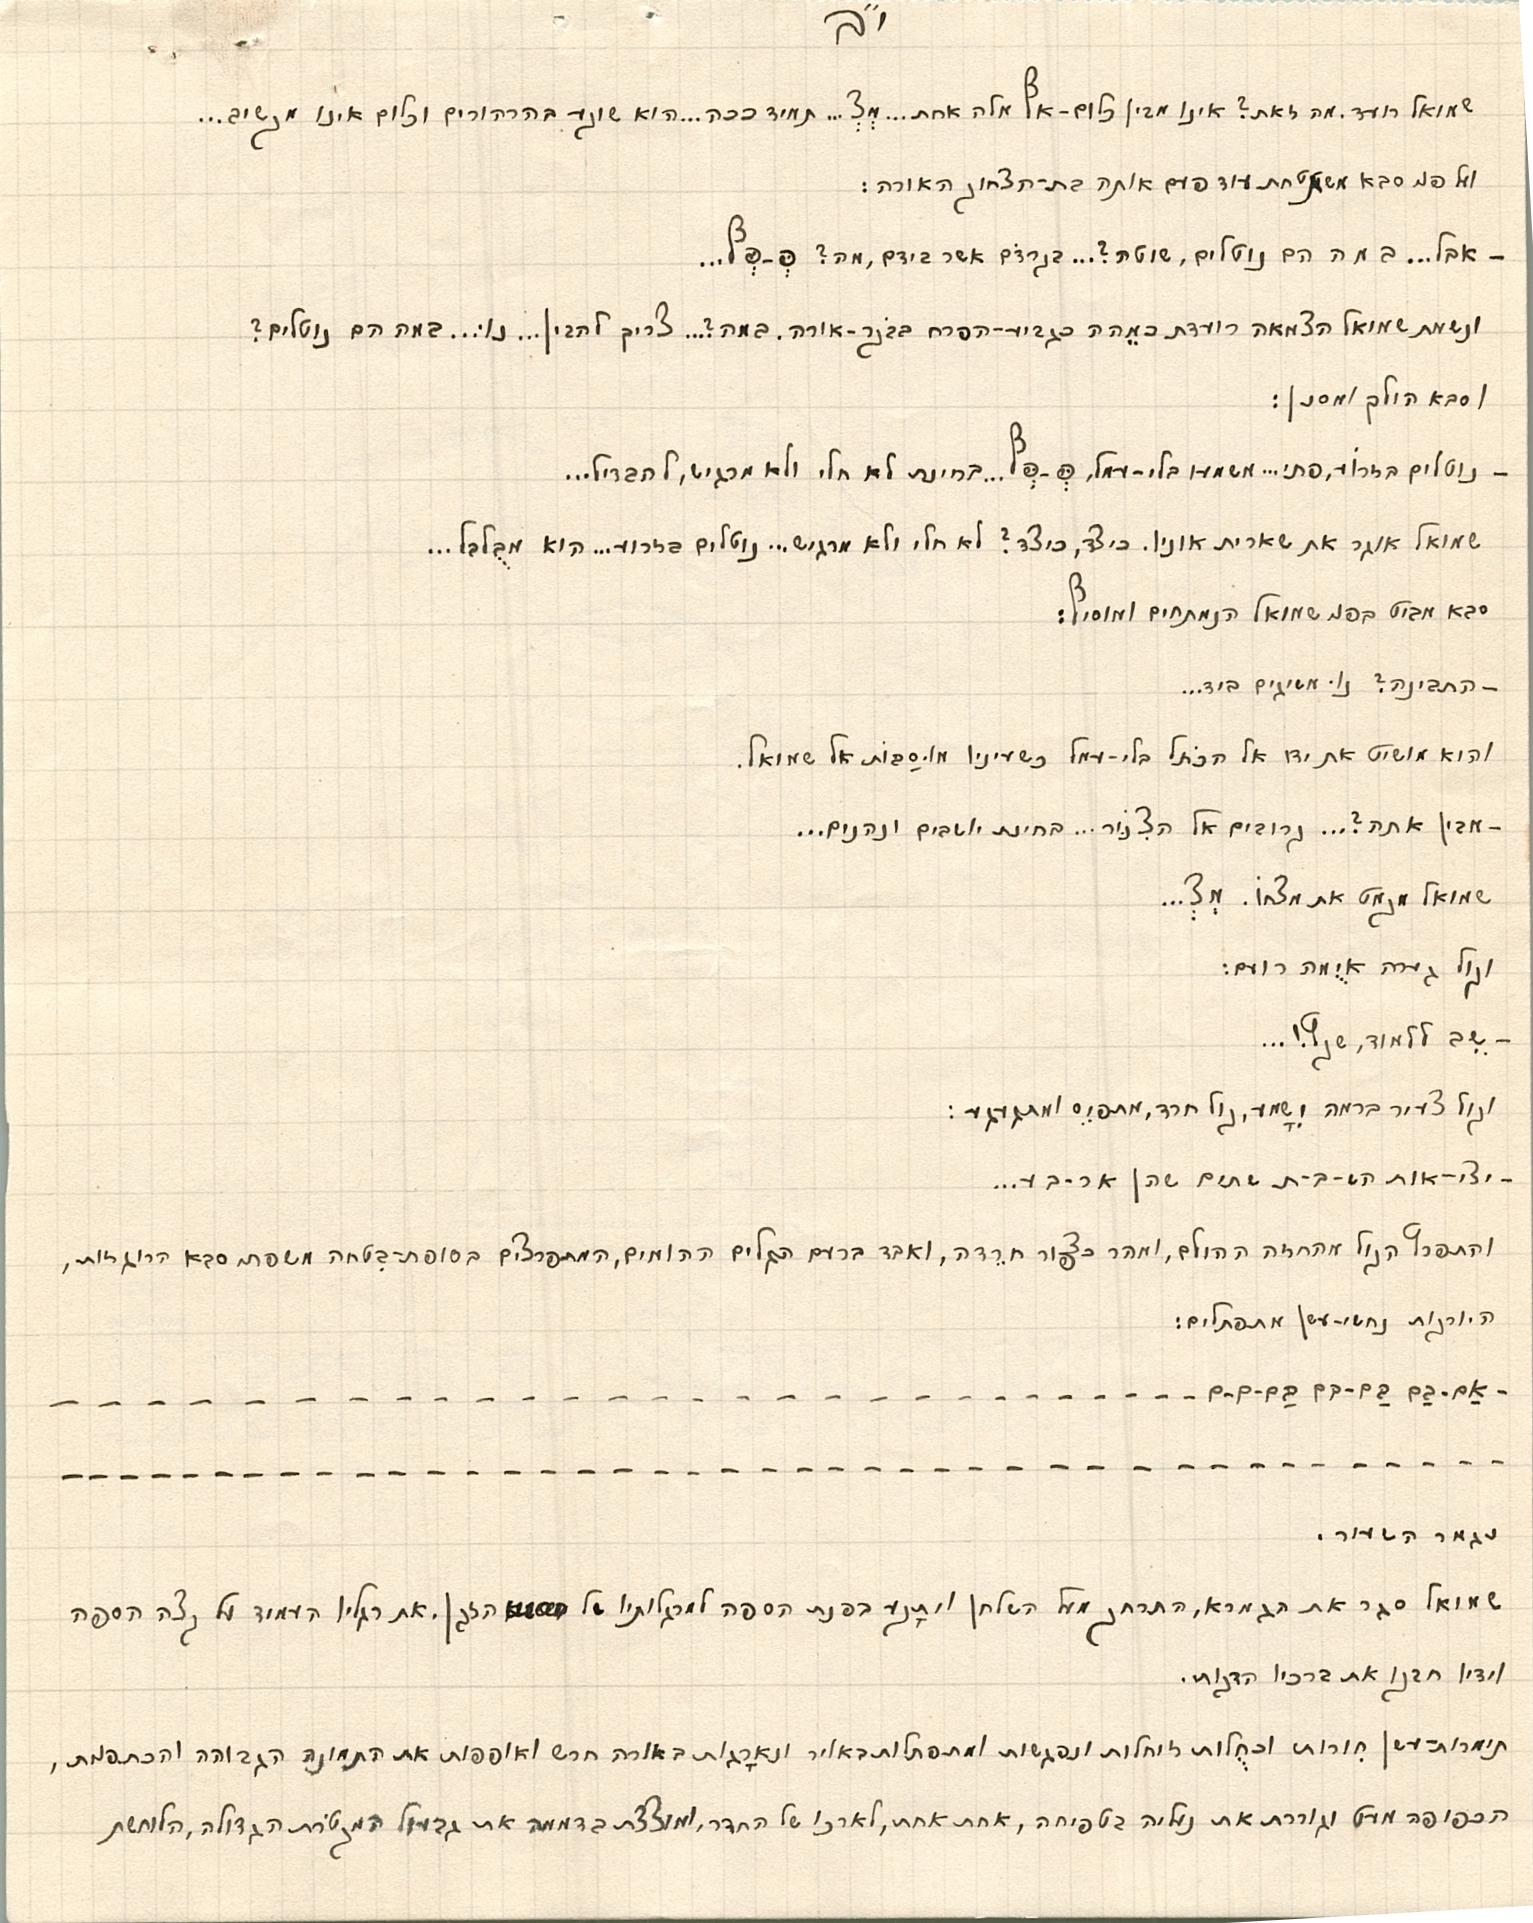 י"ב
שמואל רועד. מה זאת? אינו מבין כלום-אף מלה אחת... מְצְ... תמיד ככה... הוא שוקע בהרהורים וכלום אינו מקשיב...
ועל פני סבא משתטחת עוד פעם אותה בת-הצחוק האורה:
- אבל... ב מ ה הם נוטלים, שוטה?... בקרדֹם אשר בידם, מה? פְּ-פְּף...
ונשמת שמואל הצמאה רועדת כמֵהה כגביע-הפרח בבֹקר-אורה. במה?... צריך להבין... נו:... במה הם נוטלים?
וסבא הולך ומסנן:
- נוטלים בזרוֹע, פתי... משמעו בלי-עמל, פְּ-פְּף... בחינת לא חלי ולא מרגיש, להבדיל...
שמואל אוגר את שארית אוניו. כיצד, כיצד? לא חלי ולא מרגיש... נוטלים בזרוע... הוא מבֻלבל...
סבא מביט בפני שמואל הנמתחים ומוסיף:
- התבינה? נו: משיגים ביד...
והוא מושיט את ידו אל הכֹתל בלי-עמל כשעיניו מוּסַבּוֹת אל שמואל.
- מבין אתה?... קרובים אל הצִנּוֹר... בחינת יושבים ונהנים...
שמואל מקמט את מצחוֹ. מְצְ...
וקול גערה אֲיֻמה רועם:
- שֵׁב ללמוד, שקץ!...
וקול צעיר ברמה יִשָׁמע, קול חרד, מתפיֵס ומתגעגע:
- יצי-אות הש-ב-ת שתים שהן אר-ב ע...
והתפרץ הקול מהחזה ההולם, ומהר כצִפּור חרֵדה, ואבד ברעם הגלים ההומים, המתפרצים בסופת-בִּטחה משפתי סבא הרוגזות,
היורקות נחשי-עשן מתפתלים:
- אַם-בַּם בַּם-בם בַּם-ם-ם - - - - - - - - - - - - - - - - - - - -
- - - - - - - - - - - - - - - - - - - - - - - - - - - - - - - - - - - - - - -
נגמר השעור.
שמואל סגר את הגמרא, התרחק מעל השלחן ויתָקע בפנת הספה למרגלותיו של הזקן. את רגליו העמיד על קצה הספה
וידיו חבקו את ברכיו הדקות.
תימרות-עשן חִורות וכחֻלות זוחלות ונפגשות ומתפתלות באויר ונאֶרָגות באורה חרש ואופפות את התמונה הגבוהה והכתפנית,
הכפופה מעט וגוררת את נעליה בטפיחה, אחת אחת, לארכו של החדר, ומוצצת בדממה את גבעול המקטֹרת הגדולה, הלוחשת